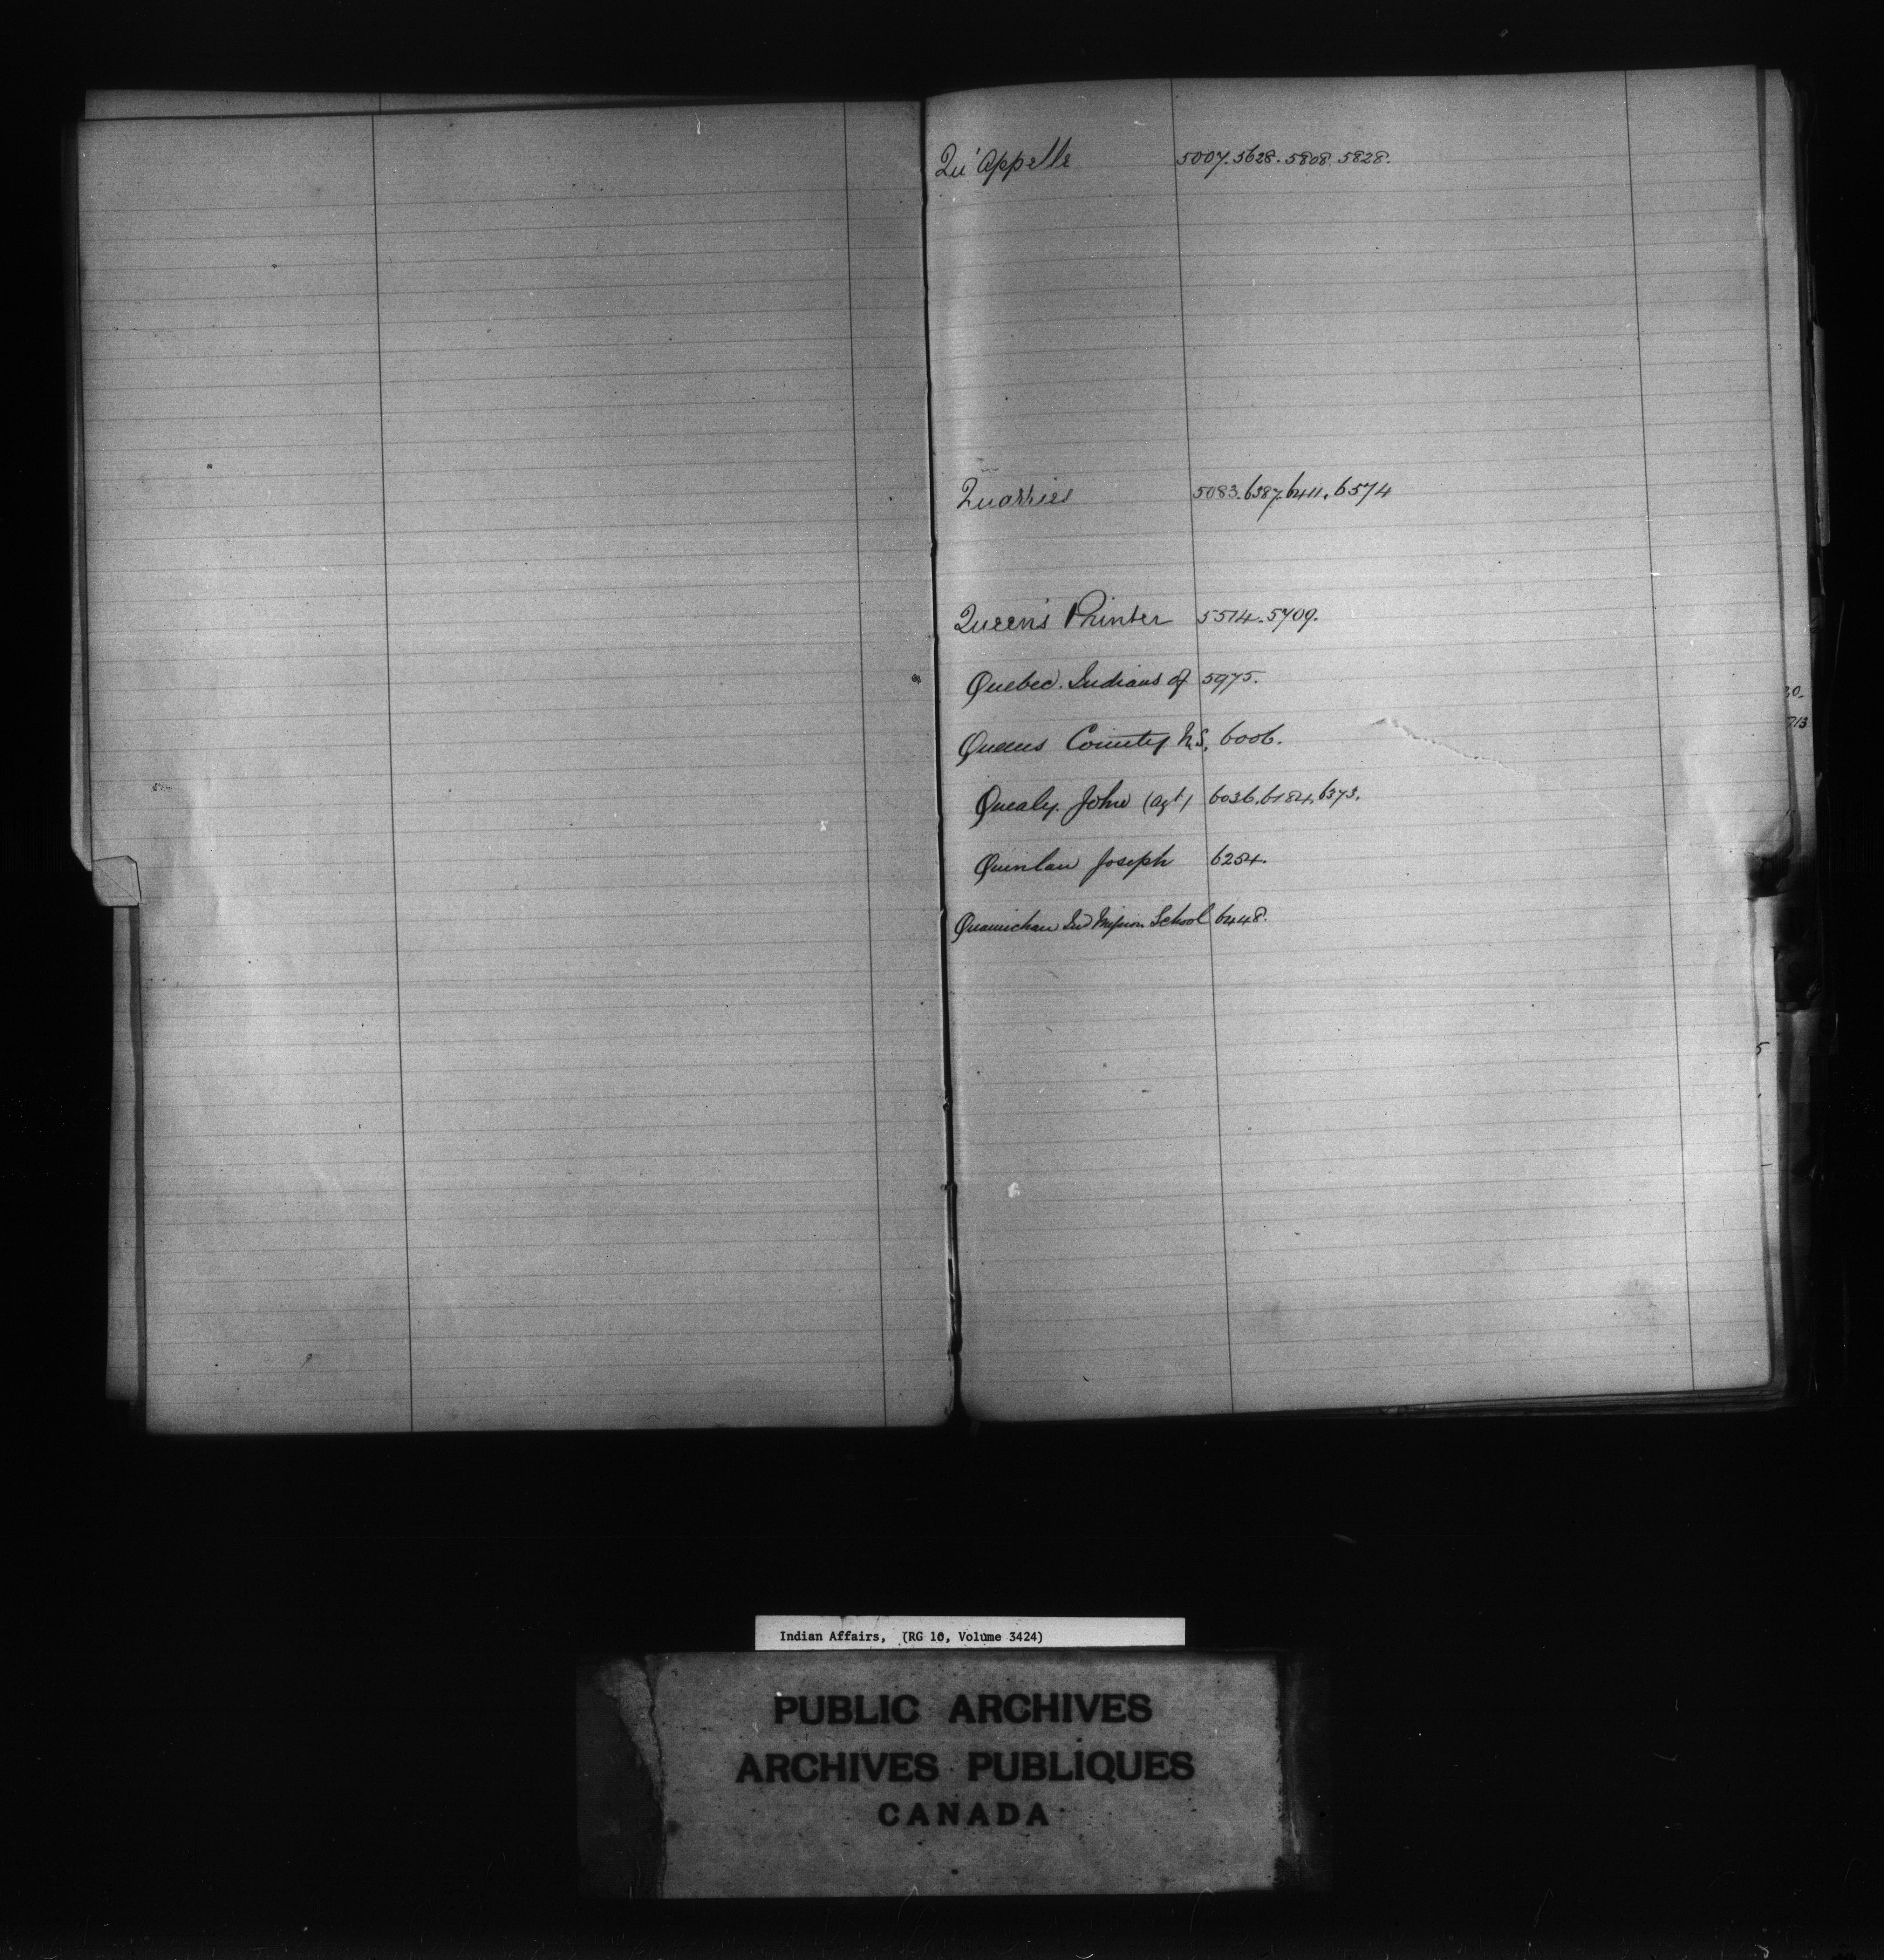 Qu'Appelle 5007. 5628. 5808. 5828.
Quarries 5083. 6387. 6411. 6574
Queen's Printer 5514. 5709.
Quebec. Indians of 5975.
Queens County N.S. 6006.
Quealy. John (Agt) 6036. 6184. 6373.
Quinlan Joseph 6254.
Quamichan Ind Mission School 6448.
Indian Affairs, (RG 10, Volume 3424)
PUBLIC ARCHIVES
ARCHIVES PUBLIQUES
CANADA